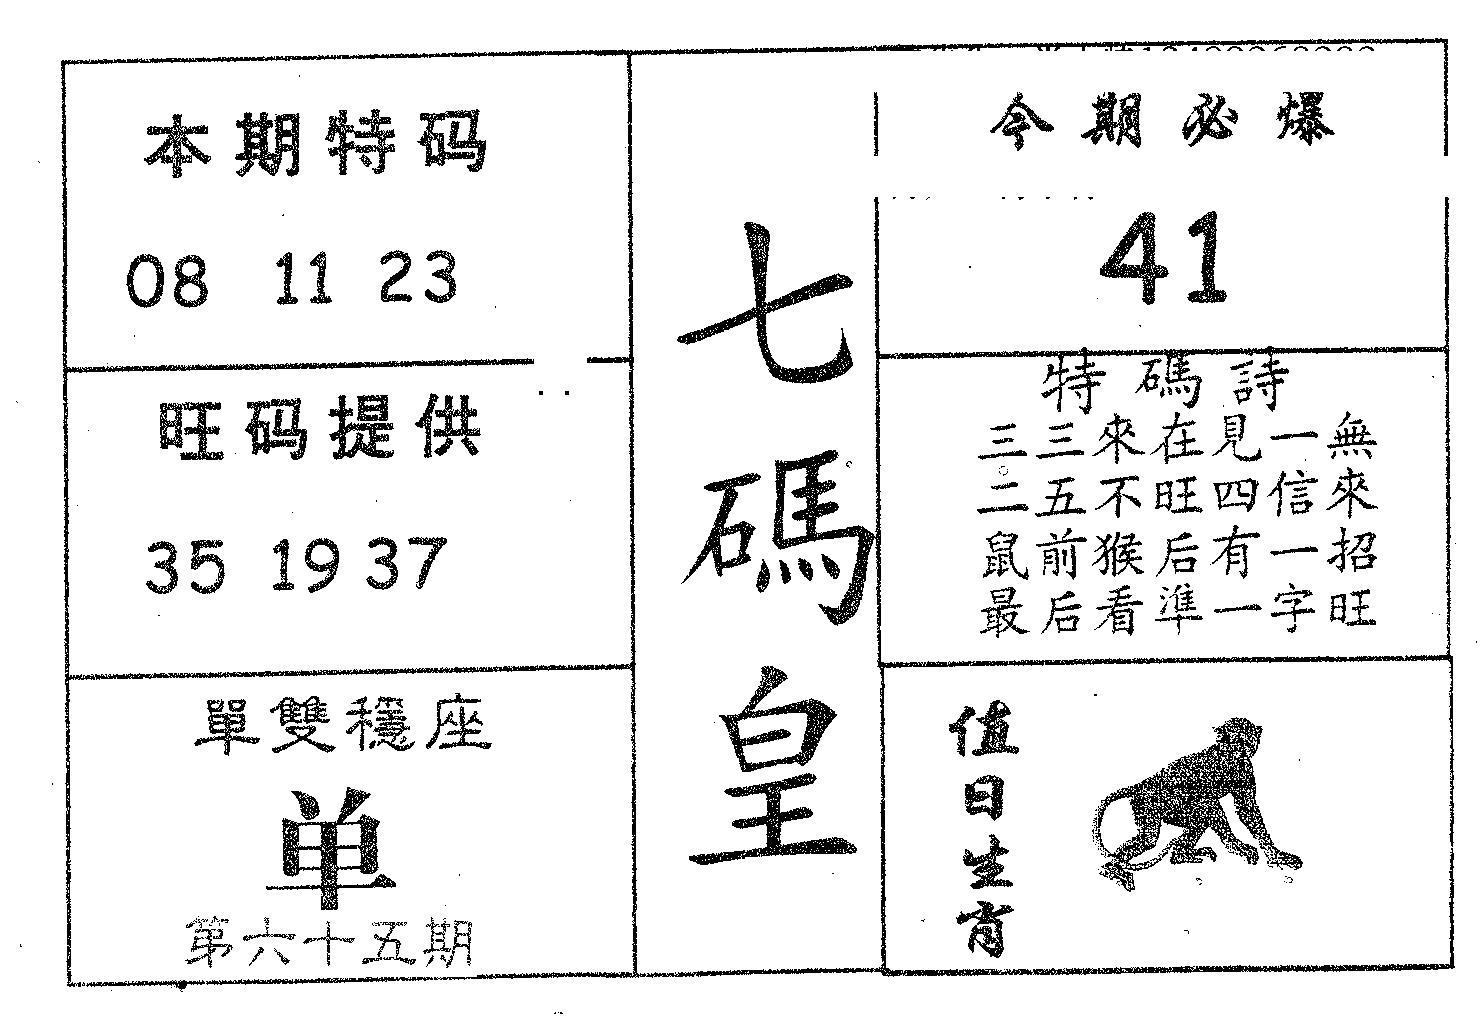 本期特码
08 11 23
旺码提供
35 19 37
單雙穩座
单
第六十五期
七碼皇
今期必爆
41
特碼詩
三三來在見一無
二五不旺四信來
鼠前猴后有一招
最后看準一字旺
值日生肖